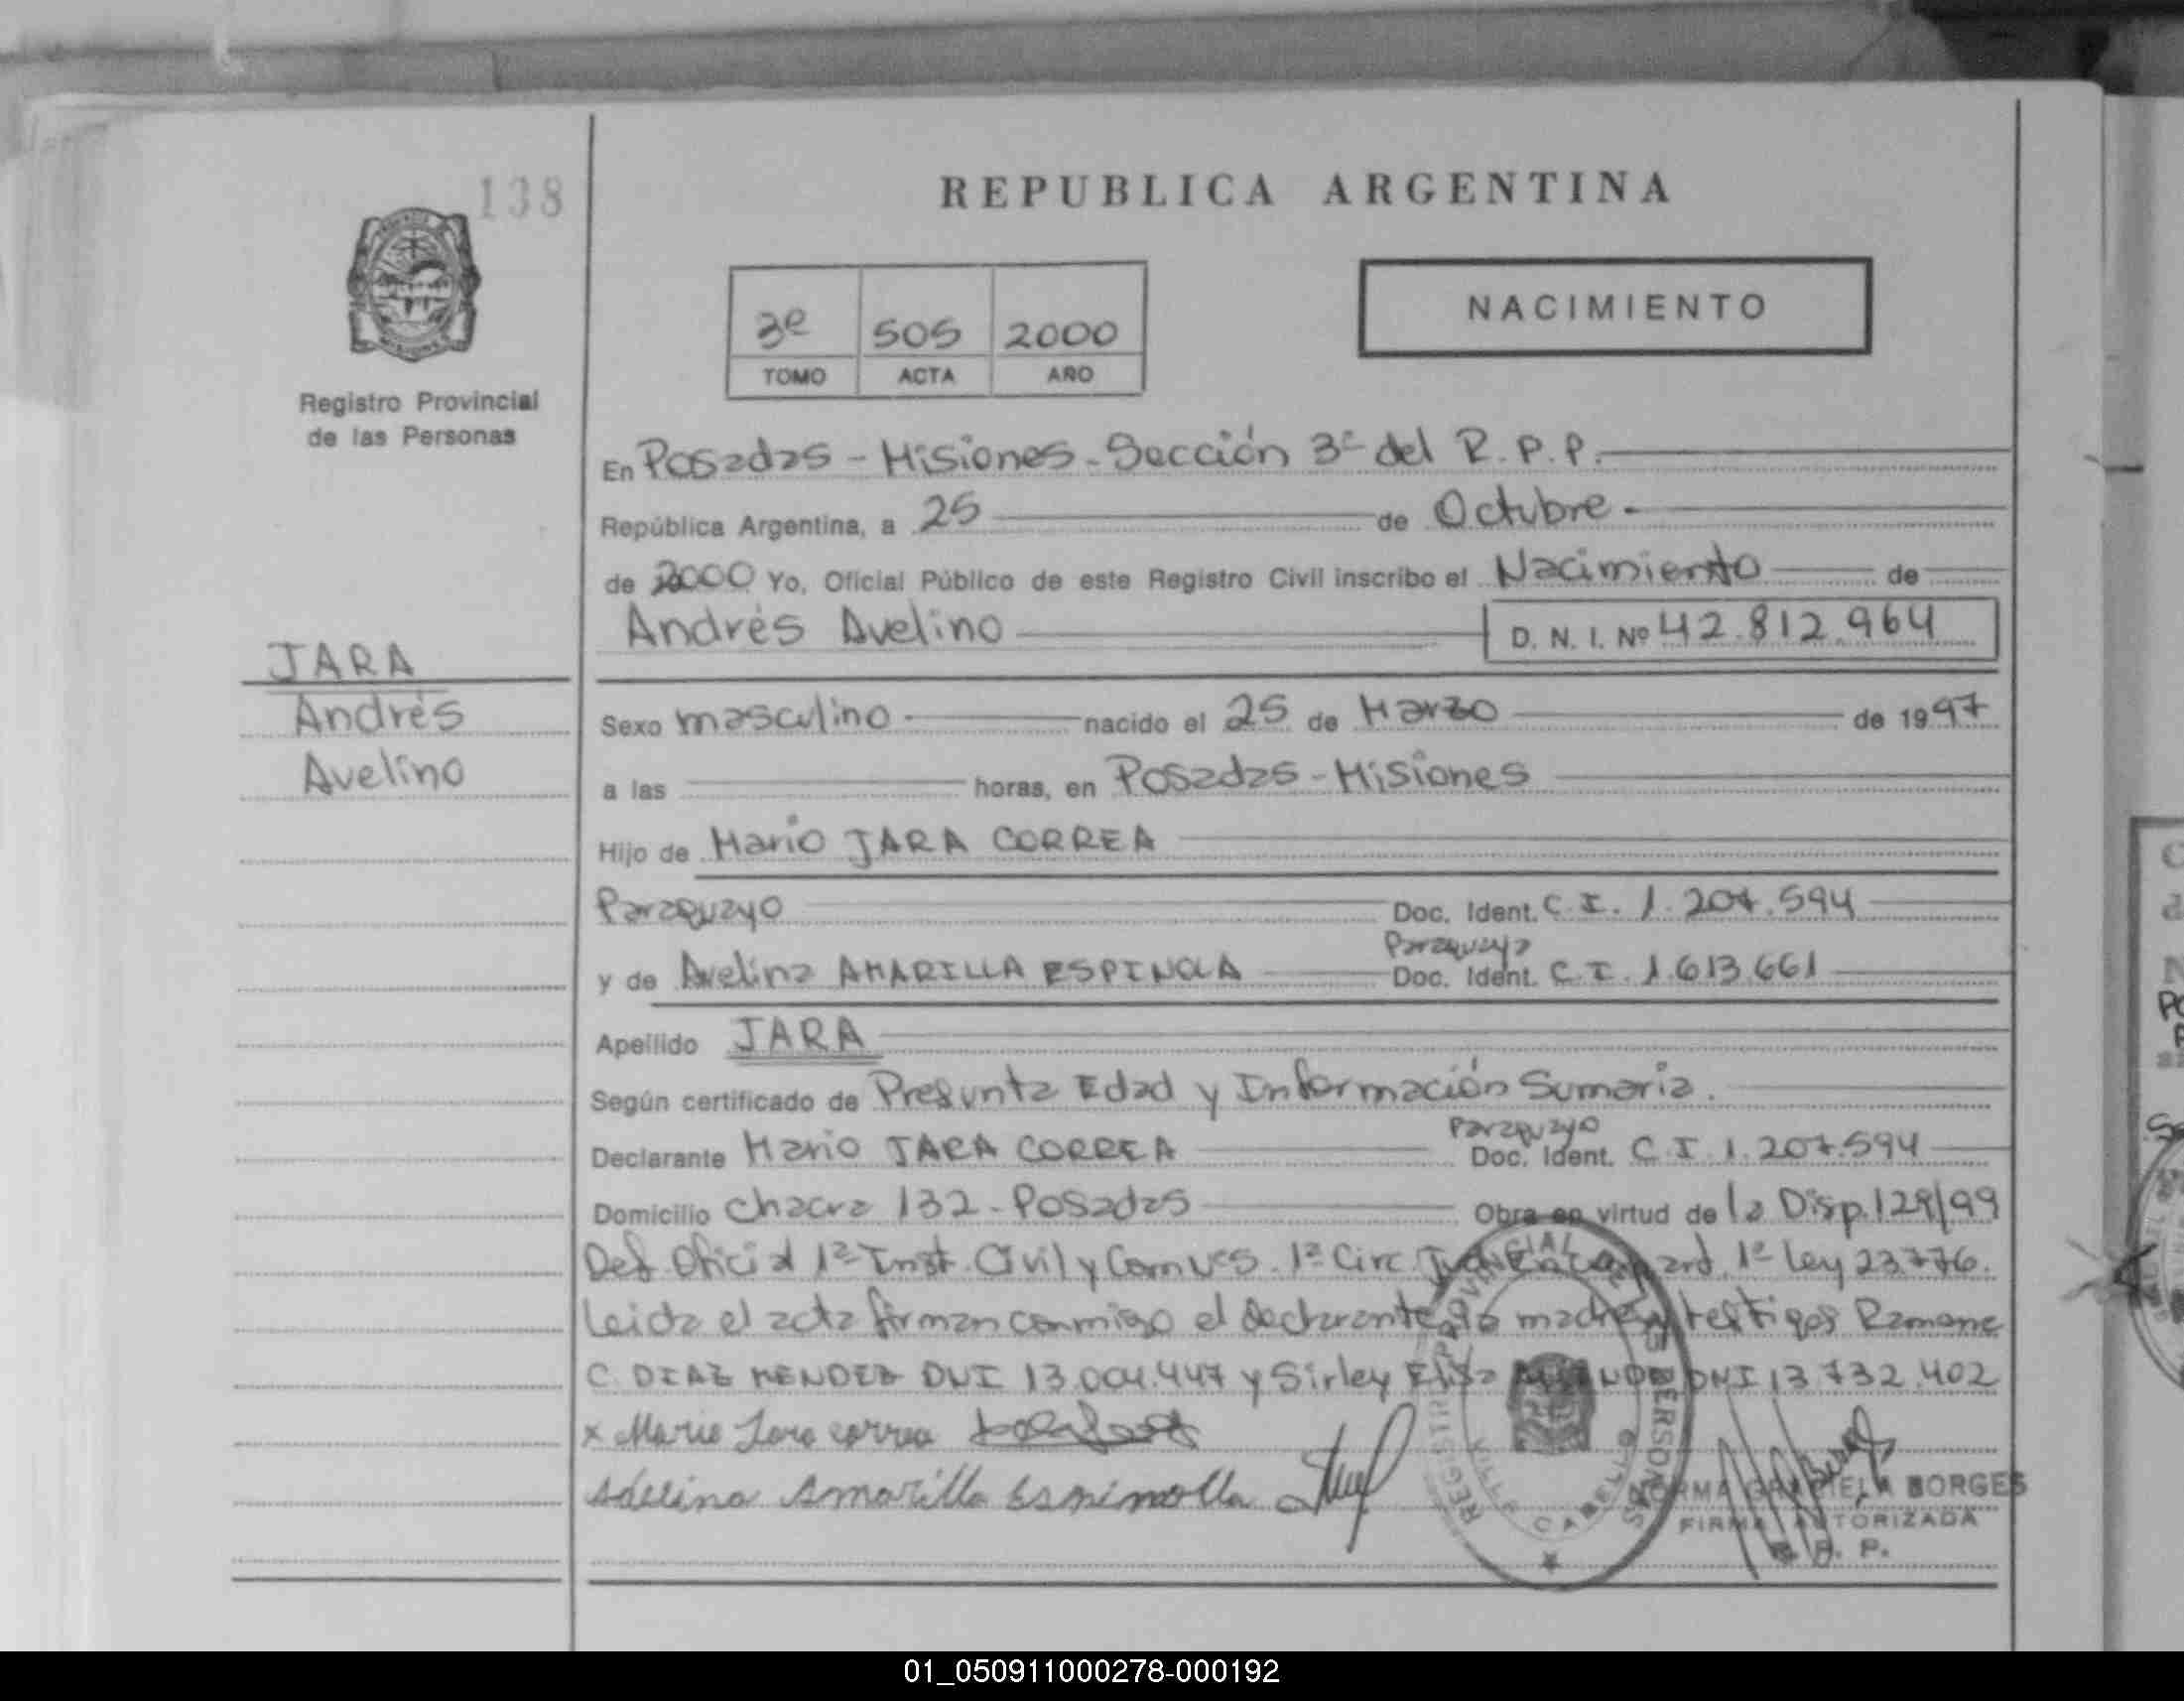 138
REPUBLICA ARGENTINA
3e 505 2000
TOMO ACTA AÑO
NACIMIENTO
Registro Provincial
de las Personas
En Posadas - Misiones - Sección 3ª del R. P. P.
República Argentina, a 25 de Octubre -
de 2000 Yo, Oficial Público de este Registro Civil inscribo el Nacimiento de
Andrés Avelino D. N. I. Nº 42.812.964
JARA
Andrés
Avelino
Sexo masculino - nacido el 25 de Marzo de 1997
a las horas, en Posadas - Misiones
Hijo de Mario JARA CORREA
Paraguayo Doc. Ident. C. I. 1.207.594
Paraguaya
y de Avelina AMARILLA ESPINOLA Doc. Ident. C. I. 1.613.661
Apellido JARA
Según certificado de Presunta Edad y Información Sumaria.
Paraguayo
Declarante Mario JARA CORREA Doc. Ident. C. I. 1.207.594
Domicilio Chacra 132 - Posadas Obra en virtud de la Disp. 129/99
Def. Oficial 1ª Inst. Civil y Com 1ª Circ 1ª Ley 23776.
Leida el acta firman conmigo el declarante, la madre y testigos Ramona
C. DIAZ MENDEZ DNI 13.004.447 y Sirley Elisa DNI 13 732.402
x Mario Jara correa
Adelina Amarilla Espinolla
REGISTRO PROVINCIAL DE LAS PERSONAS
VILLA CABELLO
NORMA GRACIELA BORGES
FIRMA AUTORIZADA
R. P. P.
01_050911000278-000192